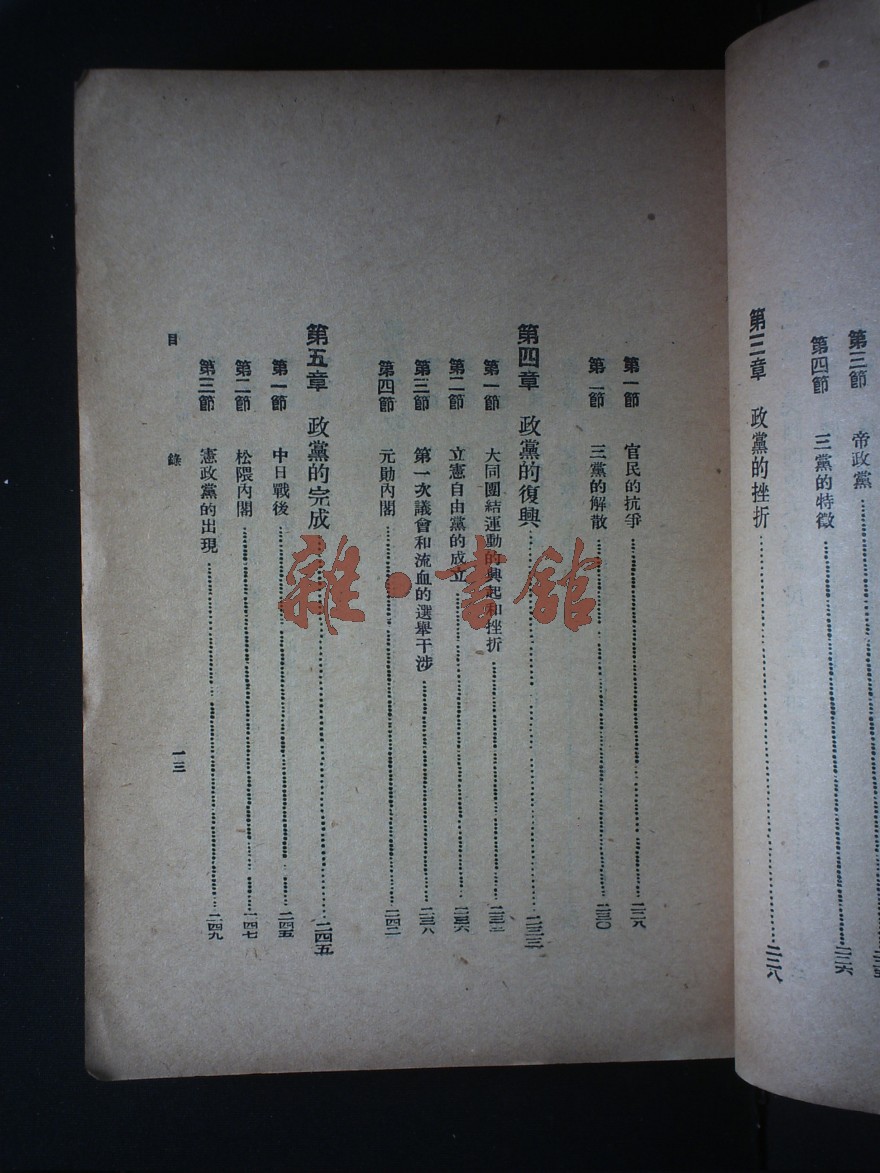 第三節 帝政黨
第四節 三黨的特徵……二二六
第三章 政黨的挫折……二二八
第一節 官民的抗爭……二二八
第二節 三黨的解散……二三〇
第四章 政黨的復興……二三三
第一節 大同團結運動的興起和挫折……二三三
第二節 立憲自由黨的成立……二三六
第三節 第一次議會和流血的選舉干涉……二三八
第四節 元勛內閣……二四二
第五章 政黨的完成……二四五
第一節 中日戰後……二四五
第二節 松隈內閣……二四七
第三節 憲政黨的出現……二四九
目錄 一三
雜·書館